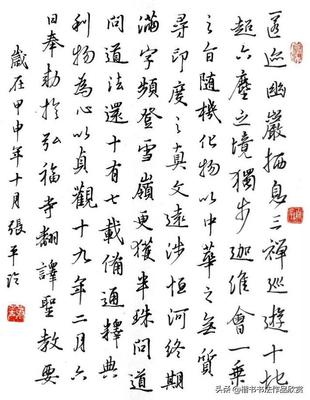 匿迹幽巖栖息三禪巡遊十地
超六塵之境獨步迦維會一乘
之旨隨機化物以中華之無質
尋印度之真文遠涉恒河終期
滿字頻登雪嶺更獲半珠問道
問道法還十有七載備通釋典
利物為心以貞觀十九年二月六
日奉勅於弘福寺翻譯聖教要
歲在甲申年十月張平
头条 @楷书书法作品欣赏